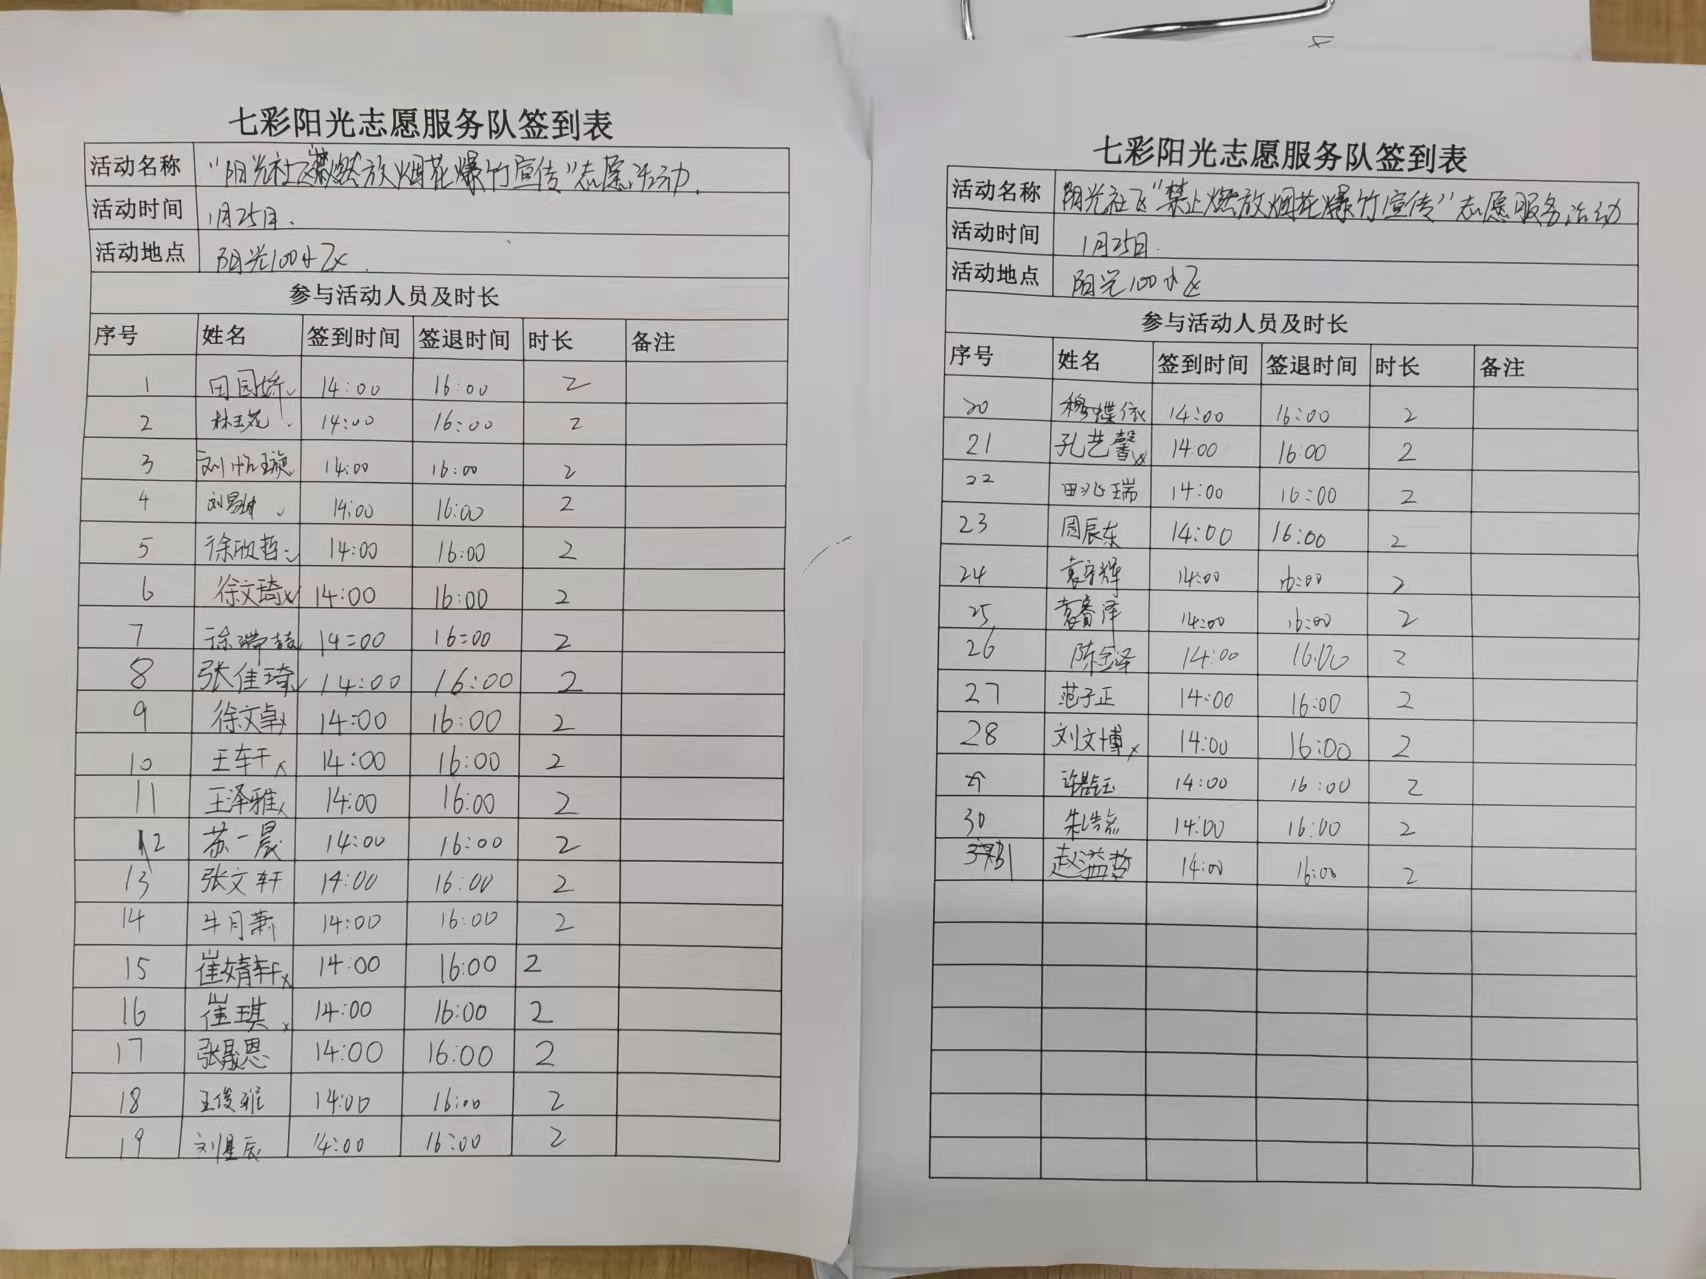 七彩阳光志愿服务队签到表
活动名称 "阳光社区禁燃放烟花爆竹宣传"志愿活动.
活动时间 1月25日.
活动地点 阳光100小区.
参与活动人员及时长
序号 姓名 签到时间 签退时间 时长 备注
1 田园娇 14:00 16:00 2
2 林玉苑 14:00 16:00 2
3 刘怡璇 14:00 16:00 2
4 刘易坤 14:00 16:00 2
5 徐欣哲 14:00 16:00 2
6 徐文琦 14:00 16:00 2
7 徐瑞喆 14:00 16:00 2
8 张佳琦 14:00 16:00 2
9 徐文卓 14:00 16:00 2
10 王车干 14:00 16:00 2
11 王泽雅 14:00 16:00 2
12 苏一晨 14:00 16:00 2
13 张文轩 14:00 16:00 2
14 牛月萧 14:00 16:00 2
15 崔婧轩 14:00 16:00 2
16 崔琪 14:00 16:00 2
17 张晟恩 14:00 16:00 2
18 王俊雅 14:00 16:00 2
19 刘星辰 14:00 16:00 2
七彩阳光志愿服务队签到表
活动名称 阳光社区"禁止燃放烟花爆竹宣传"志愿服务活动
活动时间 1月25日.
活动地点 阳光100小区
参与活动人员及时长
序号 姓名 签到时间 签退时间 时长 备注
20 穆蝶依 14:00 16:00 2
21 孔艺馨 14:00 16:00 2
22 田兆瑞 14:00 16:00 2
23 周辰东 14:00 16:00 2
24 袁守辉 14:00 16:00 2
25 袁睿泽 14:00 16:00 2
26 陈金泽 14:00 16:00 2
27 范子正 14:00 16:00 2
28 刘文博 14:00 16:00 2
29 14:00 16:00 2
30 14:00 16:00 2
31 赵溢哲 14:00 16:00 2